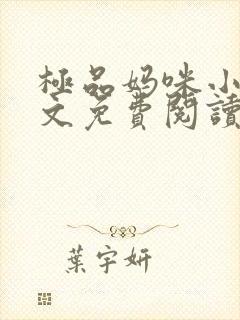 極品媽咪小
文免費閱讀
葉宇妍